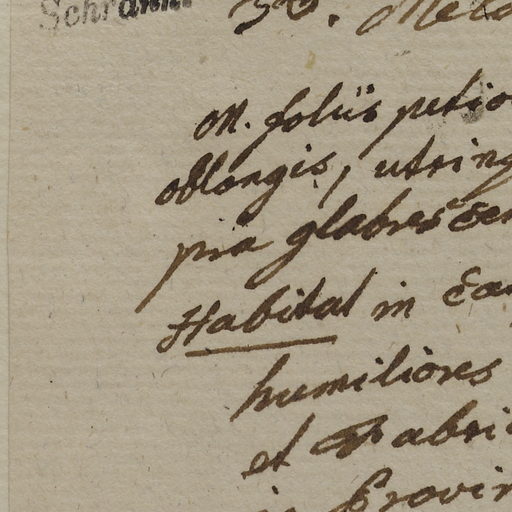 Schrank
30. Mela
M. foliis petio
oblongis, utrinq
pra glabrescen
Habitat in Ea
humiliores
et Fabri
in Provin